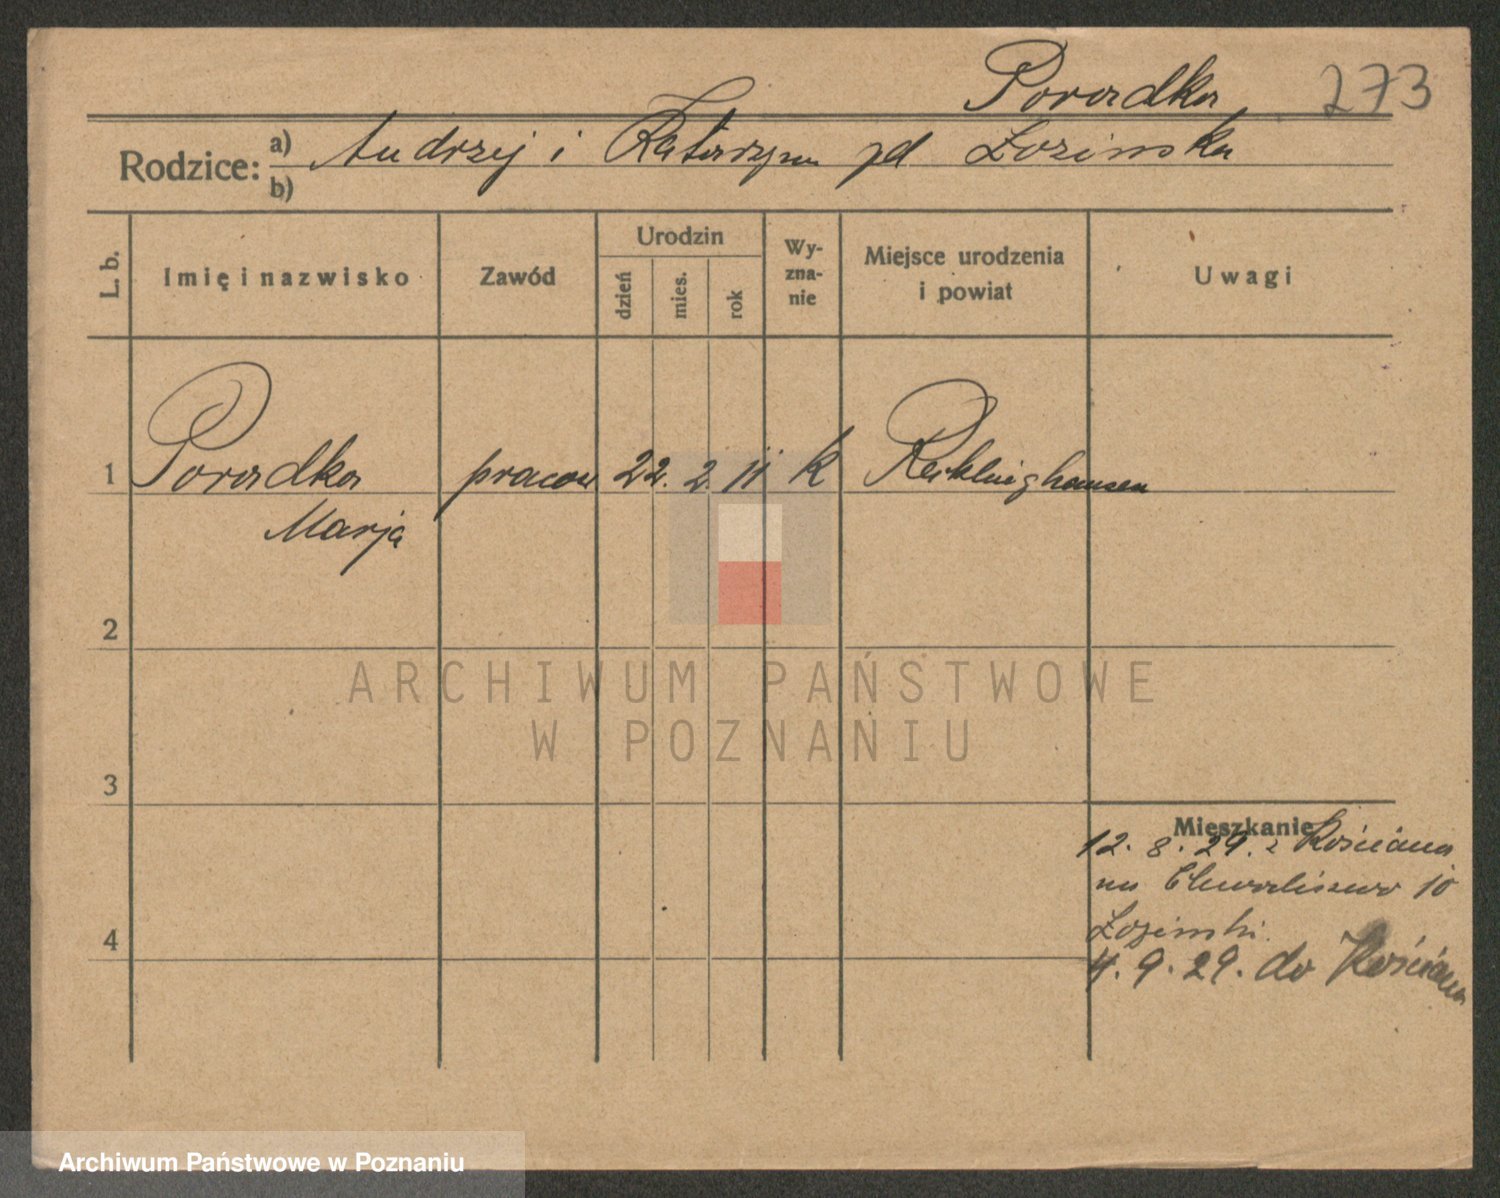 Poradka 273
Rodzice: a) Andrzej i Katarzyna zd Łozinska
b)
L. b. Imię i nazwisko Zawód Urodzin dzień mies. rok Wy-zna-nie Miejsce urodzenia i powiat Uwagi
1 Poradka pracow 22. 2. 11 k Recklinghausen
Marja
2
ARCHIWUM PAŃSTWOWE
W POZNANIU
3
Mieszkanie
12. 8. 29. z Kościana
na Chwaliszewo 10
Łozinski.
4
4. 9. 29. do Kościana
Archiwum Państwowe w Poznaniu